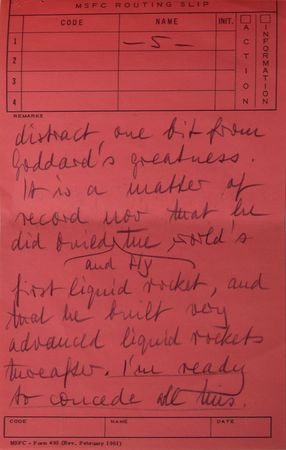 MSFC ROUTING SLIP
CODE NAME INIT. ACTION INFORMATION
1 — 5 —
2
3
4
REMARKS
distract one bit from
Goddard's greatness.
It is a matter of
record now that he
did build the world's
and fly
first liquid rocket, and
that he built very
advanced liquid rockets
thereafter. I'm ready
to concede all this.
CODE NAME DATE
MSFC - Form 495 (Rev. February 1961)